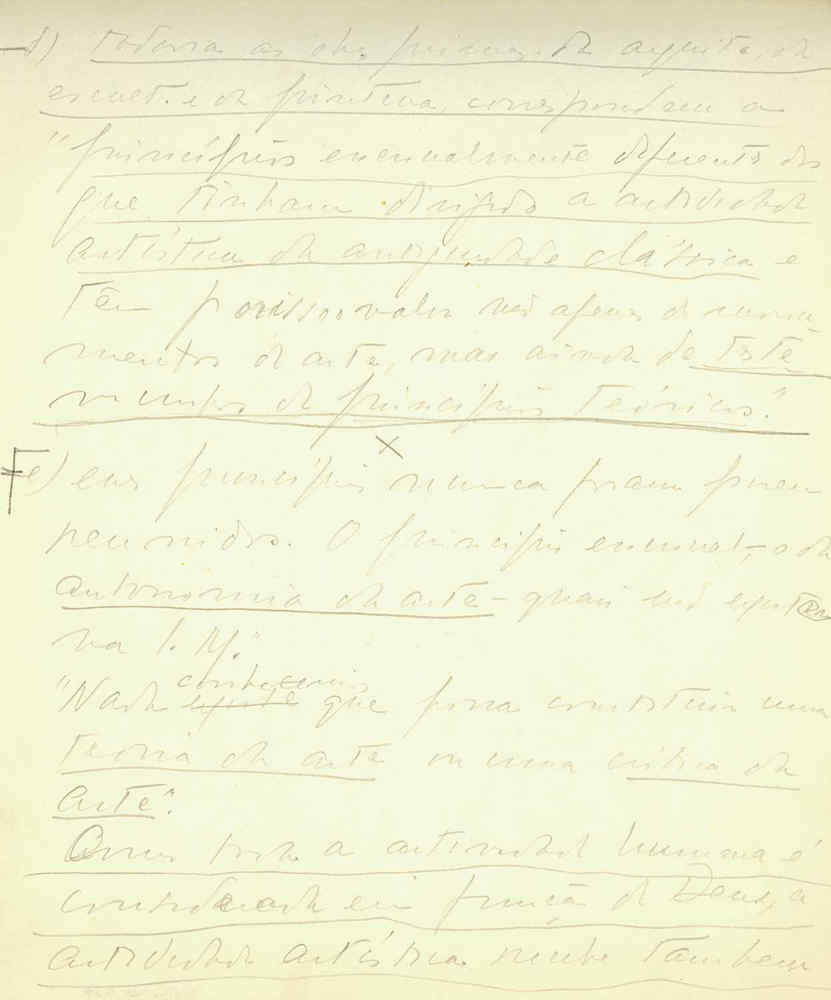 d) todavia as obras primas da arquit., da
escult. e da pintura, correspondem a
"princípios essencialmente diferentes dos
que tinham dirigido a actividade
artística da antiguidade clássica e
têm por isso o valor não apenas de monu-
mentos de arte, mas ainda de teste
munhos de princípios teóricos."
e) esses princípios nunca foram
reunidos. O princípio essencial, o da
autonomia da arte - quasi não
na I. M."
"Nada conhecemos que possa constituir uma
teoria da arte ou uma crítica da
arte".
Como toda a actividade humana é
considerada em função de Deus, a
actividade artística recebe também